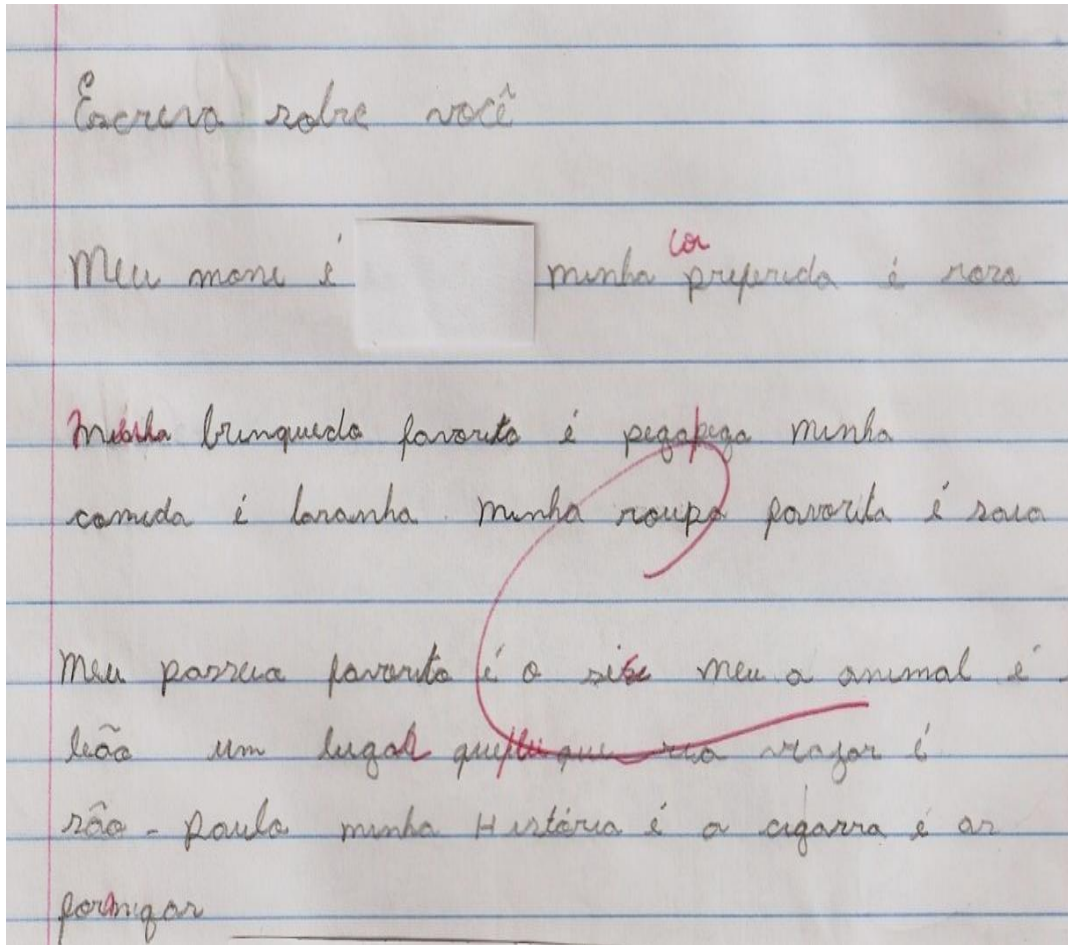 Escreva sobre você
Meu mone é minha cor preferida é roza
minha brinquedo favorito é pegapega minha
comida é laranha. minha roupa favorita é saia
Meu passeia favorito é o meu a animal é
leão um lugal que é
são-paulo minha História é a cigarra é as
formigas